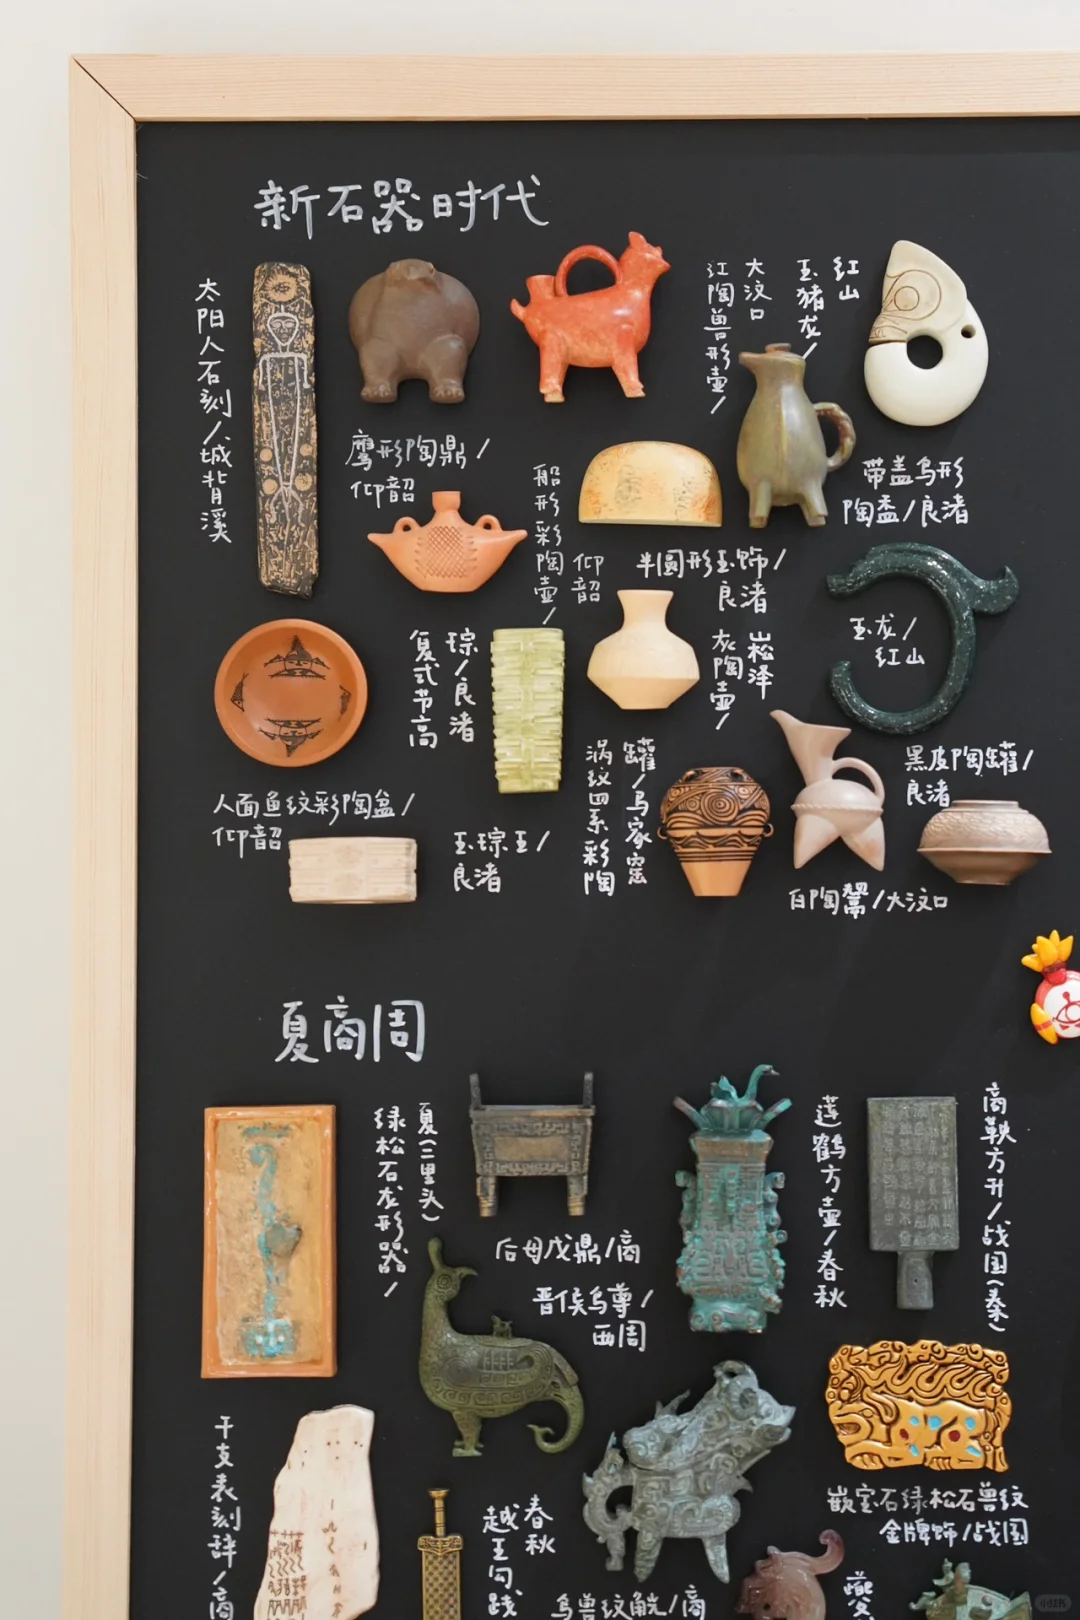 新石器时代
太阳人石刻/城背溪
鹰形陶鼎/
仰韶
船形彩陶壶/
仰韶
大汶口
红陶兽形壶/
红山
玉猪龙/
带盖鸟形
陶盉/良渚
半圆形玉饰/
良渚
玉龙/
红山
琮/良渚
复式节高
崧泽
灰陶壶/
人面鱼纹彩陶盆/
仰韶
玉琮王/
良渚
罐/马家窑
涡纹四系彩陶
黑皮陶罐/
良渚
白陶鬶/大汶口
夏商周
夏(二里头)
绿松石龙形器/
后母戊鼎/商
晋侯鸟尊/
西周
莲鹤方壶/春秋
商鞅方升/战国(秦)
干支表刻辞/商
春秋
越王勾践
鸟兽纹觥/商
嵌宝石绿松石兽纹
金牌饰/战国
小红书